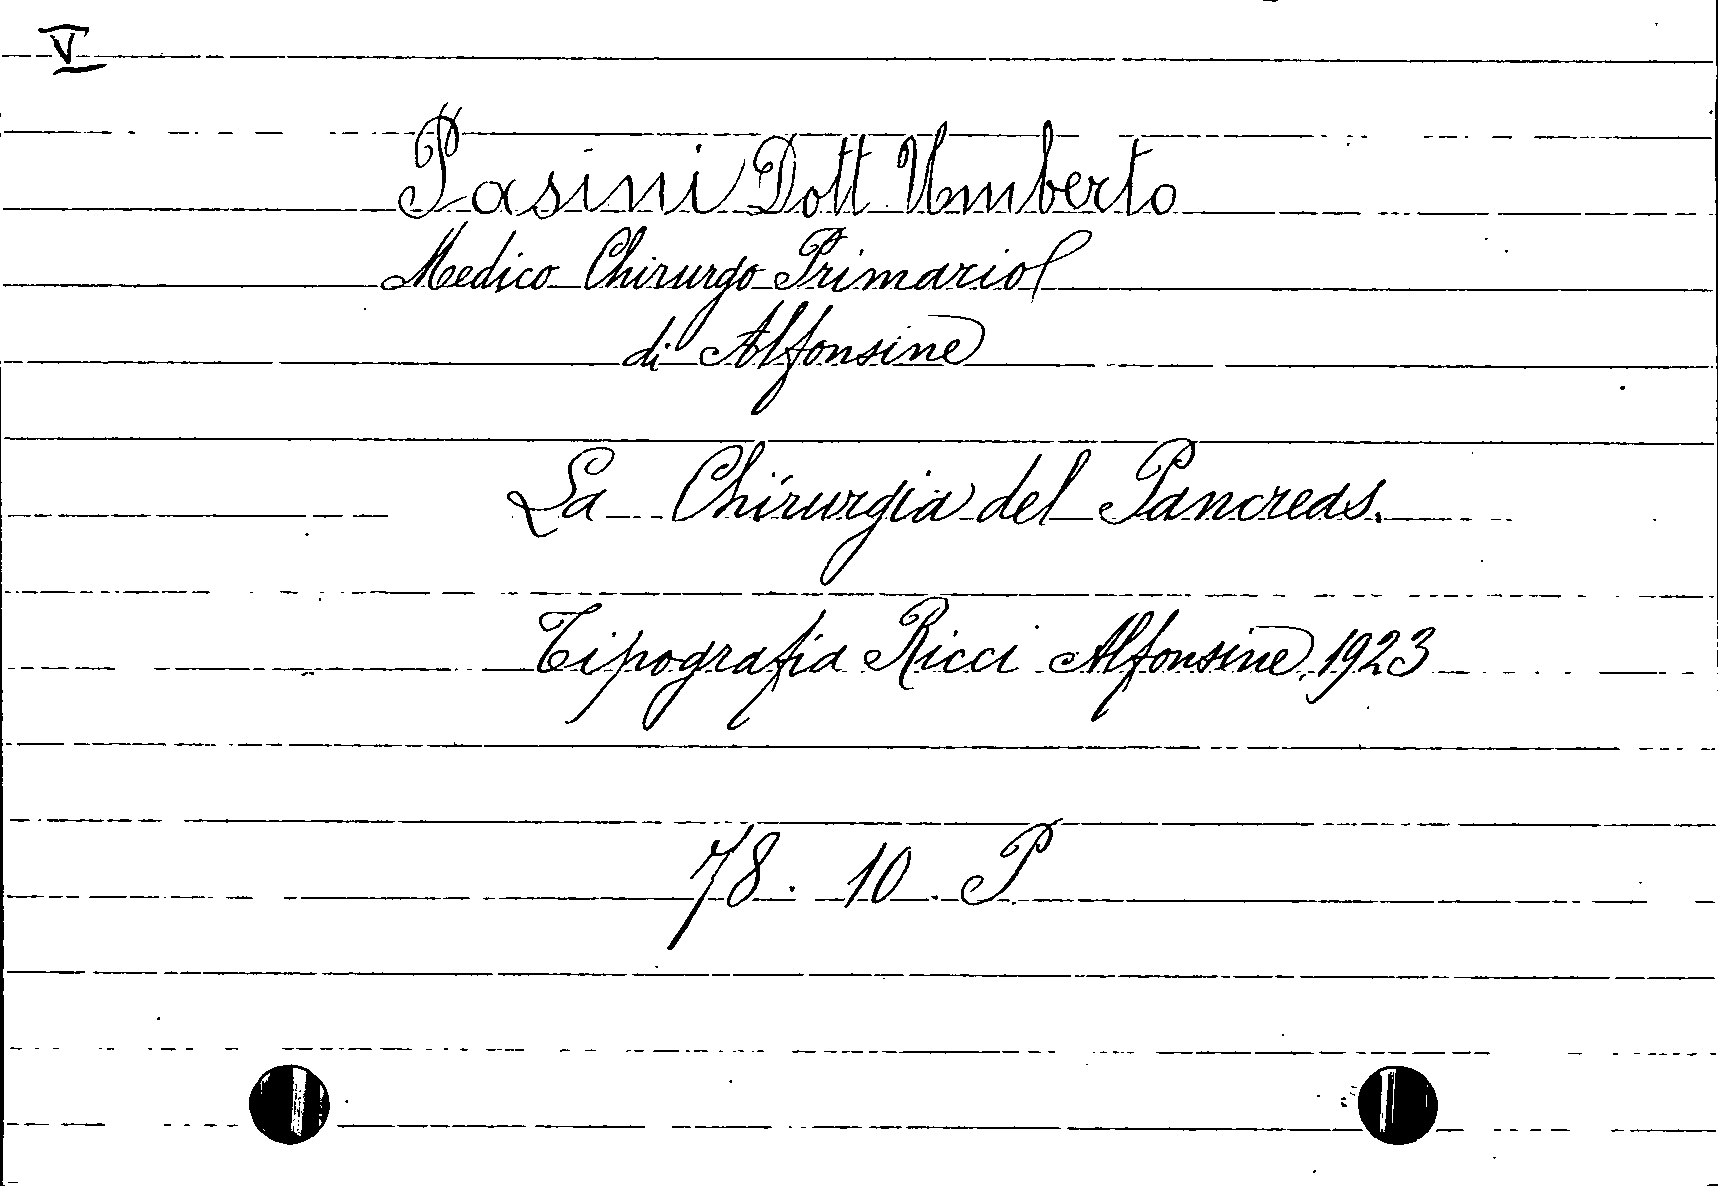 V
Pasini Dott Umberto
Medico Chirurgo Primario
di Alfonsine
La Chirurgia del Pancreas.
Tipografia Ricci Alfonsine, 1923
78. 10. P